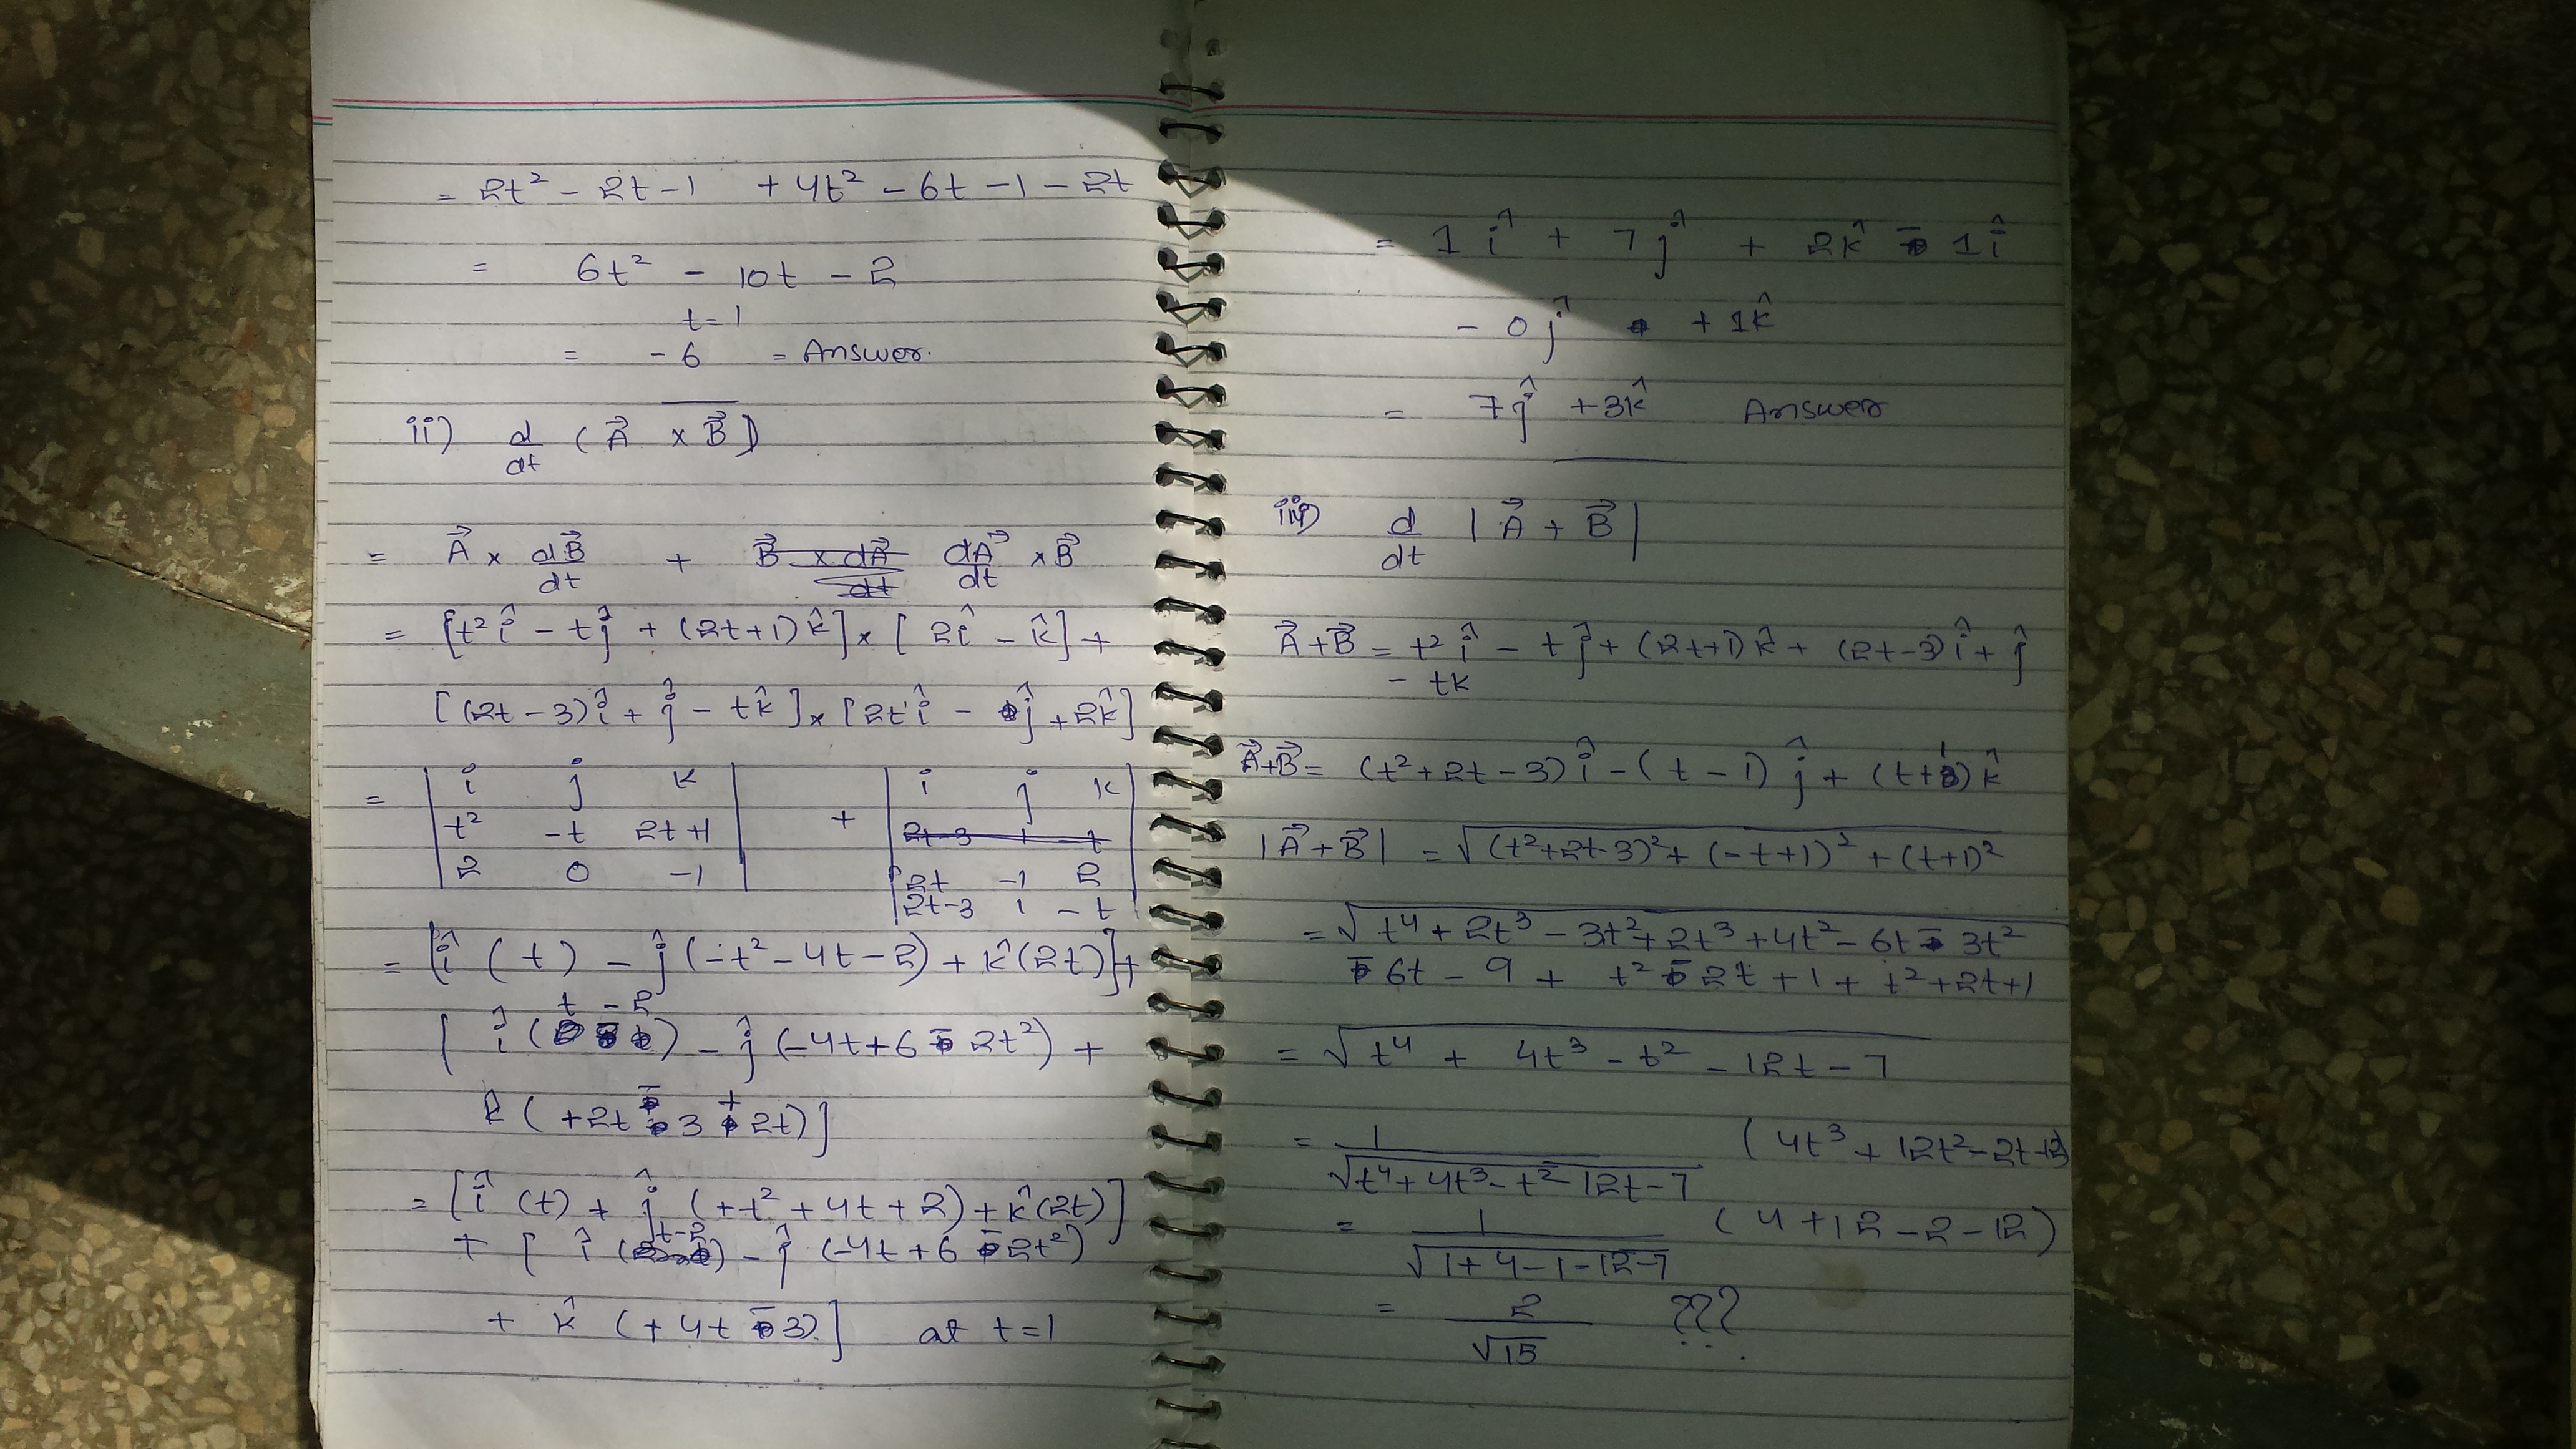 = 2t² - 2t - 1 + 4t² - 6t - 1 - 2t
= 6t² - 10t - 2
t = 1
= - 6 = Answer.
ii) d/dt (A⃗ × B⃗)
= A⃗ × dB⃗/dt + B⃗ × dA⃗/dt dA⃗/dt × B⃗
= [t² î - t ĵ + (2t+1) k̂] × [2î - k̂] +
[(2t-3) î + ĵ - t k̂] × [2t î - ĵ + 2k̂]
= | i j k | + | i j k |
t² -t 2t+1 2t-3 1 -t
2 0 -1 2t -1 2
2t-3 1 -t
= [î (t) - ĵ (-t² - 4t - 2) + k̂ (2t)] +
t - 2
[ î ( ) - ĵ (-4t + 6 - 2t²) +
k̂ ( +2t - 3 + 2t)]
= [î (t) + ĵ (+t² + 4t + 2) + k̂ (2t)]
+ [ î (t-2) - ĵ (-4t + 6 - 2t²)
+ k̂ (+4t - 3)] at t = 1
= 1 î + 7 ĵ + 2k̂ - 1 î
- 0 ĵ + 1k̂
= 7 ĵ + 3k̂ Answer
iii) d/dt | A⃗ + B⃗ |
A⃗+B⃗ = t² î - t ĵ + (2t+1) k̂ + (2t-3) î + ĵ
- tk
A⃗+B⃗ = (t²+2t-3) î - (t-1) ĵ + (t+1) k̂
|A⃗+B⃗| = √(t²+2t-3)² + (-t+1)² + (t+1)²
= √t⁴ + 2t³ - 3t² + 2t³ + 4t² - 6t - 3t²
- 6t - 9 + t² - 2t + 1 + t² + 2t + 1
= √t⁴ + 4t³ - t² - 12t - 7
= 1/√t⁴+4t³-t²-12t-7 (4t³ + 12t² - 2t - 12)
= 1/√1+4-1-12-7 (4 + 12 - 2 - 12)
= 2/√15 ???